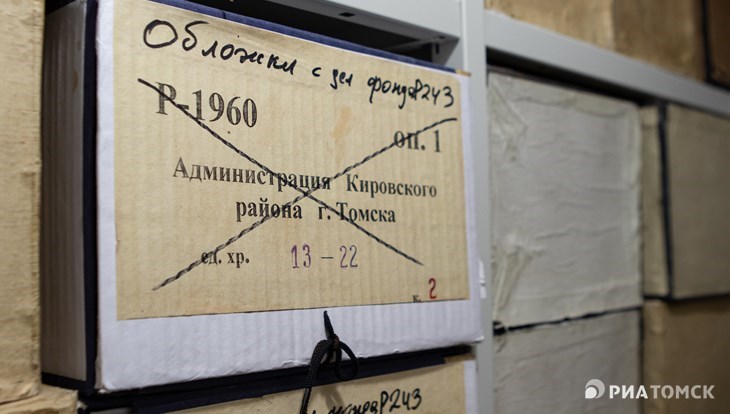 Обложки с дел фонда Р243
Р-1960
оп. 1
Администрация Кировского
района г. Томска
ед. хр. 13 – 22
к. 2
фонда Р243
РИАТОМСК